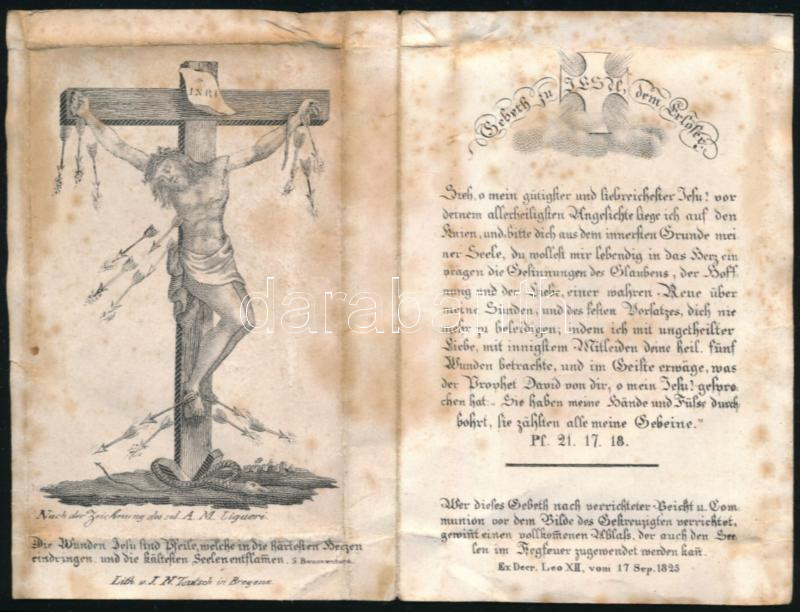 INRI
Nach der Zeichnung des sel. A. M. Liguori.
Die Wunden Jesu sind Pfeile, welche in die härtesten Herzen
eindringen und die kältesten Seelen entflamen. S. Bonaventura.
Lith. v. J. N. Teutsch in Bregenz
Gebeth zu JESU, dem Erlöser.
Sieh, o mein gütigster und liebreichester Jesu! vor
deinem allerheiligsten Angesichte liege ich auf den
Knien, und bitte dich aus dem innersten Grunde mei
ner Seele, du wollest mir lebendig in das Herz ein
prägen die Gesinnungen des Glaubens, der Hoff
nung und der Liebe, einer wahren Reue über
meine Sünden, und des festen Vorsatzes, dich nie
mehr zu beleidigen; indem ich mit ungetheilter
Liebe, mit innigstem Mitleiden deine heil. fünf
Wunden betrachte, und im Geiste erwäge, was
der Prophet David von dir, o mein Jesu! gespro
chen hat: Sie haben meine Hände und Füße durch
bohrt, sie zählten alle meine Gebeine."
Ps. 21. 17. 18.
Wer dieses Gebeth nach verrichteter Beicht u. Com
munion vor dem Bilde des Gekreuzigten verrichtet,
gewint einen vollkomenen Ablaß, der auch den See
len im Fegfeuer zugewendet werden kañ.
Ex Decr. Leo XII, vom 17 Sep. 1825
darabanth